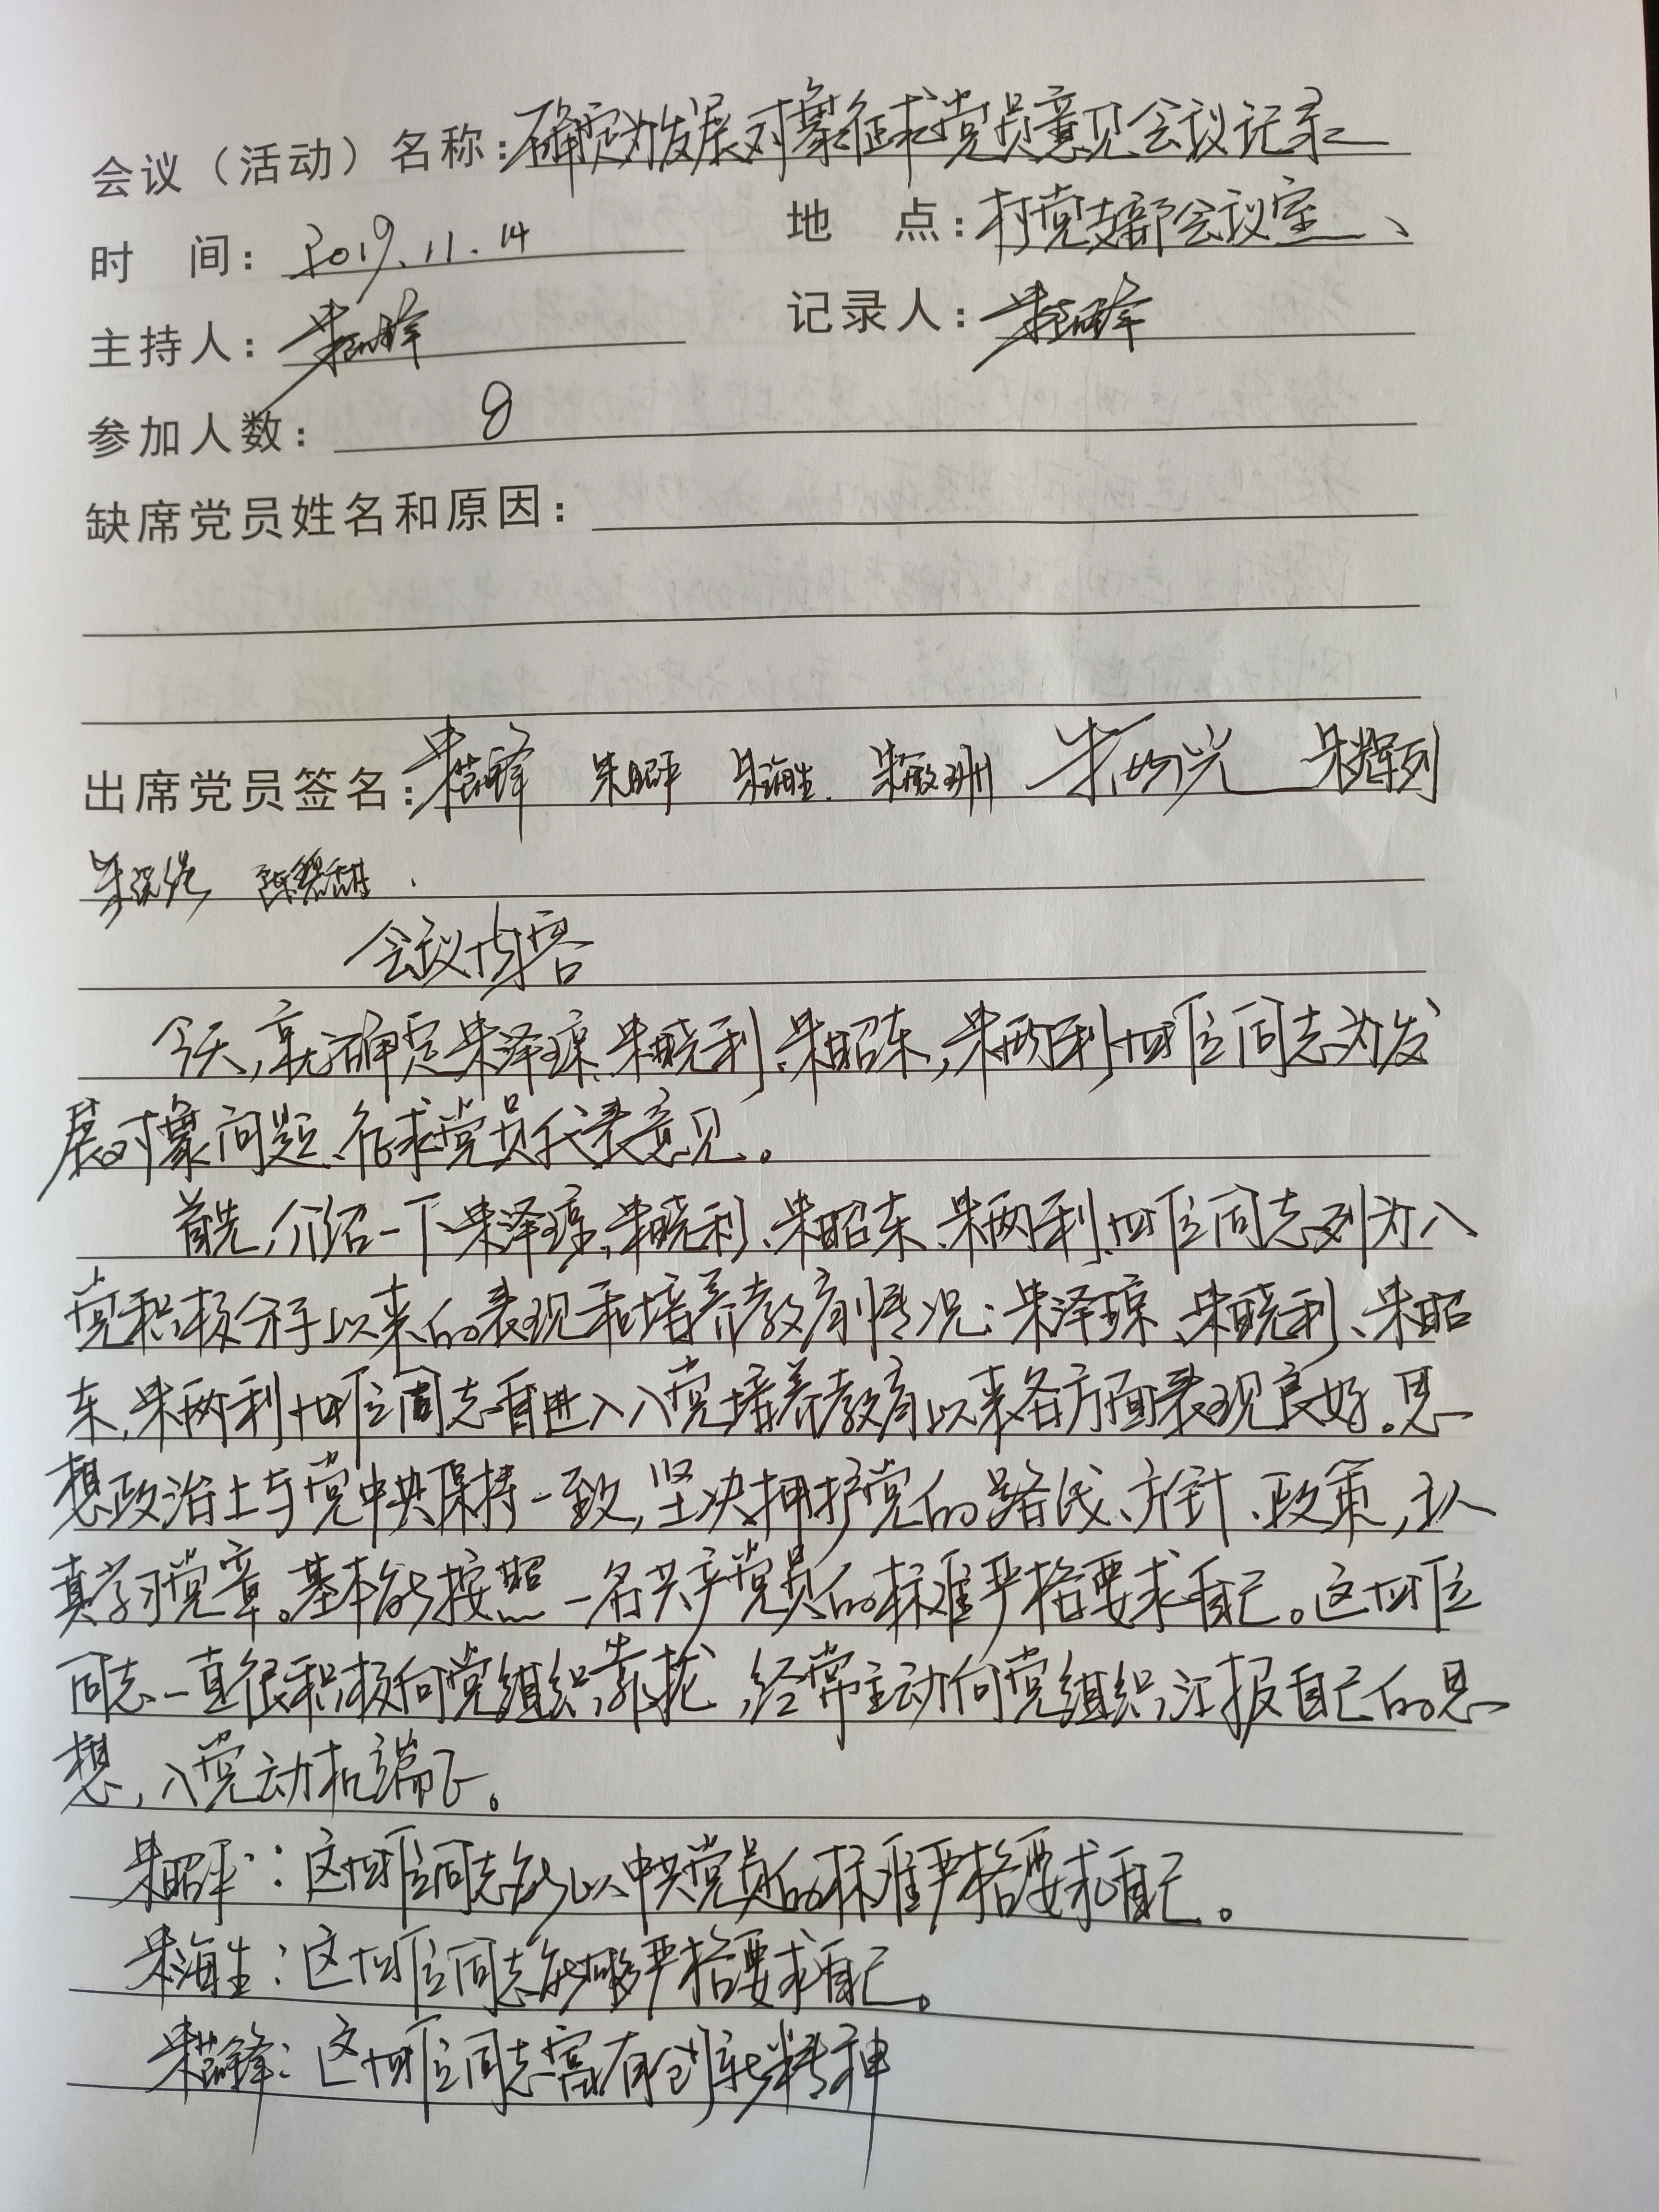 会议（活动）名称：确定为发展对象征求党员意见会议记录
时 间：2019.11.14
地 点：村党支部会议室
主持人：朱
记录人：朱
参加人数：8
缺席党员姓名和原因：
出席党员签名：朱 锋 朱昭平 朱海生 朱 朱 朱辉列
朱 陈
会议内容
今天，就确定朱泽琼、朱晓利、朱昭东，朱两利四位同志为发
展对象问题，征求党员代表意见。
首先，介绍一下朱泽琼，朱晓利、朱昭东、朱两利四位同志列为入
党积极分子以来的表现和培养教育情况：朱泽琼、朱晓利、朱昭
东，朱两利四位同志自进入入党培养教育以来各方面表现良好。思
想政治上与党中央保持一致，坚决拥护党的路线、方针、政策，认
真学习党章。基本能按照一名共产党员的标准严格要求自己。这四位
同志一直很积极向党组织靠拢，经常主动向党组织汇报自己的思
想，入党动机端正。
朱昭平：这四位同志能以中共党员的标准严格要求自己。
朱海生：这四位同志能够严格要求自己。
朱 锋：这四位同志富有创新精神